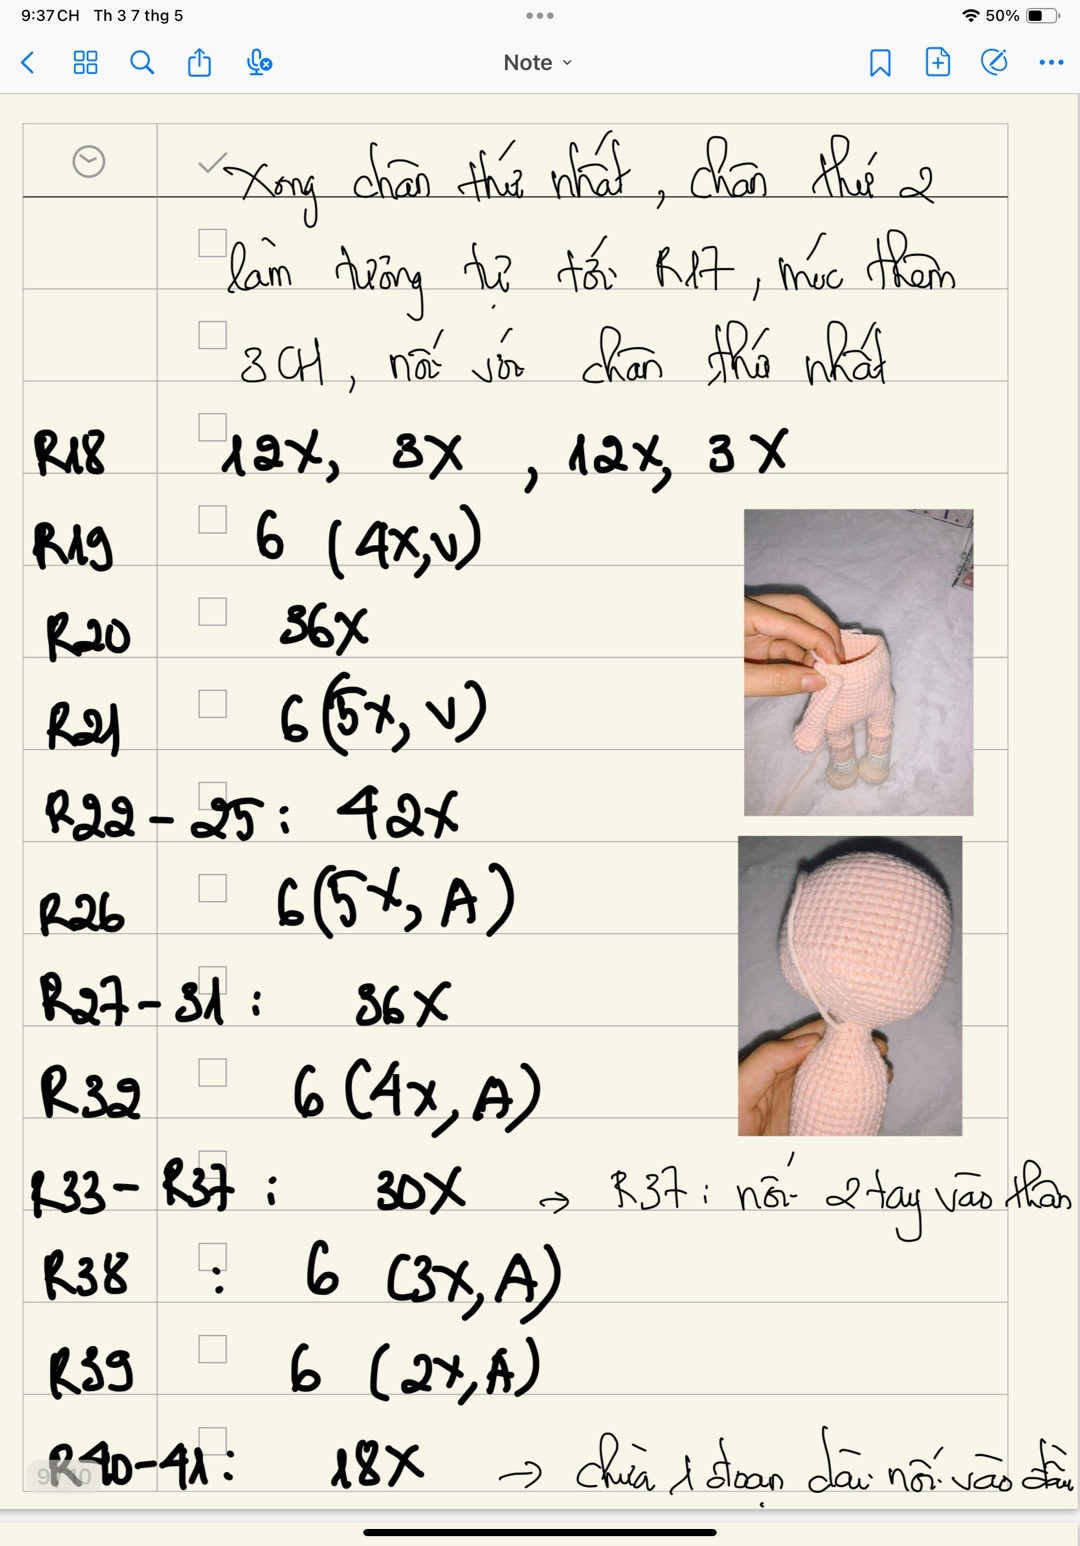 9:37 CH Th 3 7 thg 5
50%
Note
Xong chân thứ nhất, chân thứ 2
làm tương tự tới R17, móc thêm
3CH, nối với chân thứ nhất
R18 12X, 3X, 12X, 3X
R19 6 (4X,V)
R20 36X
R21 6(5X, V)
R22-25: 42X
R26 6(5X, A)
R27-31: 36X
R32 6 (4X, A)
R33-R37: 30X → R37: nối 2 tay vào thân
R38 : 6 (3X, A)
R39 6 (2X, A)
R40-41: 18X → chừa 1 đoạn dài nối vào đầu